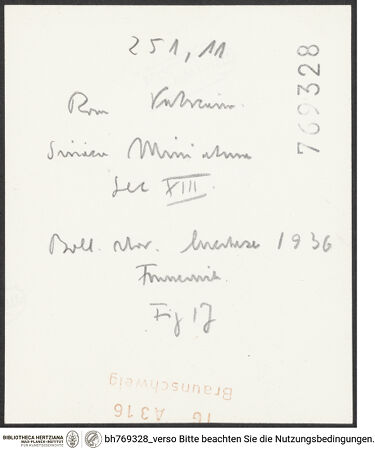 251, 11
769328
Rom Vaticana.
Miniatura
Sec XIII.
Boll. stor. Lucchese 1936
Fig 17
Braunschweig
16 A316
BIBLIOTHECA HERTZIANA
MAX-PLANCK-INSTITUT
FÜR KUNSTGESCHICHTE
bh769328_verso Bitte beachten Sie die Nutzungsbedingungen.